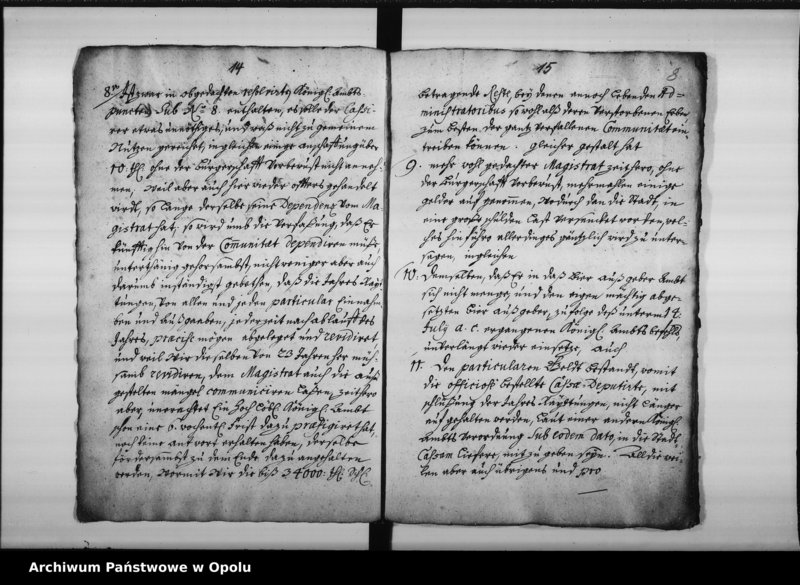 14
8tn Ist zwar in obgedachten resolvirten Königl. Ambts
puncten Sub No 8. enthalten, es solle der Cassi-
rer etwas unöthiges, und was nicht zu gemeinem
Nutzen gereichet, ingleichen einige anschaffung über
10. thl. ohne der Bürgerschafft Vorbewust nicht anneh-
men, Weil aber auch hier wieder öffters gehandelt
wirdt, so lange derselbe seine Dependenz vom Ma-
gistrat hat, so wird umb die Verfassung, daß Er
künfftighin von der Comunitat dependiren müße,
unterthänig gehorsambst, nicht weniger aber auch
darumb inständigst gebethen, daß die Jahres Ray-
tungen, von allen und jeden particular Einnah-
ben und Außgaaben, jederzeit nach ablauff des
Jahres, præcise mögen abgeleget und revidiret
und weil Wir dieselben von 23 Jahren her müh-
samb revidiren, dem Magistrat auch die auß
gestelten mängel communiciren laßen, zeithero
aber, unerachtet Ein Hoch Löbl. Königl. Ambt
schon eine 6. wochentl. Frist dazu prædigiret hat,
noch keine antwort erhalten haben, derselbe
fördersambst zu dem Ende dazu angehalten
werden, Wormit Wir die biß 34000. thl. Schl.
15
8
betragende Reste, bey denen annoch lebenden Ad-
ministratoribus so wohl alß deren Verstorbenen Erben
zum besten, der gantz verfallenen Communitæt ein-
treiben können. gleicher gestalt hat
9. mehr wohl gedachter Magistrat zeithero, ohne
der Bürgerschafft Vorbewust, mehrmahlen einige
gelder auf genommen, Wodurch dan die Stadt, in
eine große schulden Last Versencket worden, wel-
ches hinführo allerdinges gäntzlich wird zu unter-
sagen, ingleichen
10. Demselben, daß Er in daß Bier auß geber Ambt
sich nicht menge, und den eigen mächtig abge-
setzten Bier außgeber, zufolge deß unterm 14
July a. c. ergangenen Königl. Ambts Befehls,
unverlangt wieder einsetze, auch
11. Den particularen Geldt bestandt, womit
die officiosè bestellte Cassæ Deputirte, mit
schlüßung der Jahres Raythungen, nicht länger
auf gehalten werden, laut einer andern Königl.
Ambts Verordnung sub eodem dato, in die Stadt
Cassam liefere, mit zu geben seyn. All die wei-
len aber auch übrigens und pro
Archiwum Państwowe w Opolu